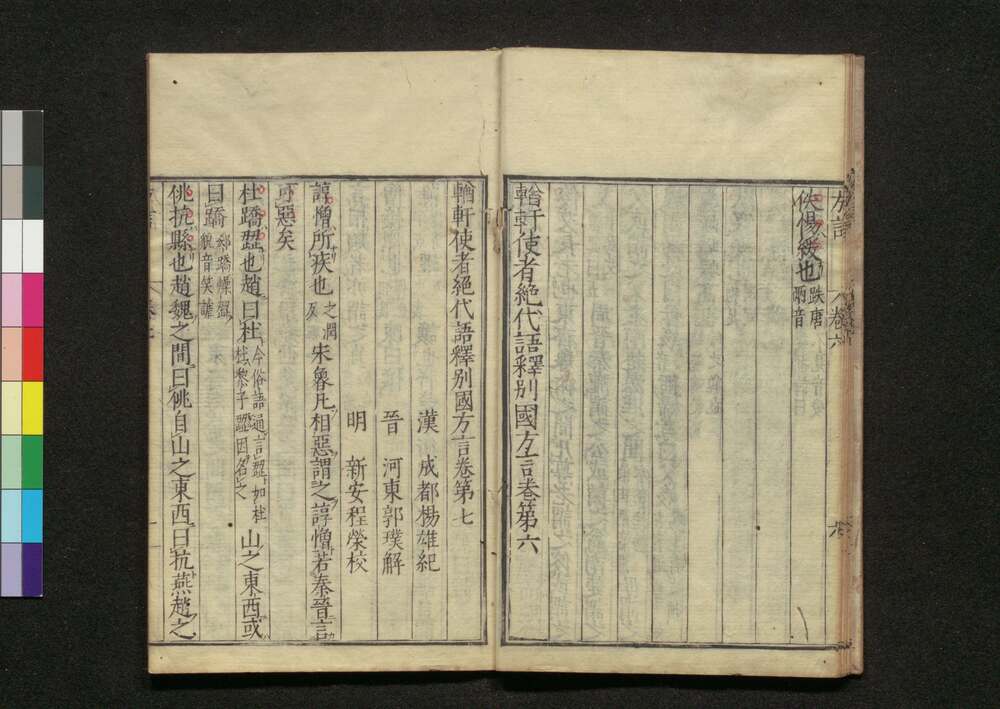 方言
卷六
六
佚惕緩也跌唐兩音
輶軒使者絕代語釋別國方言卷第六
輶軒使者絕代語釋別國方言卷第七
漢 成都楊雄紀
晉 河東郭璞解
明 新安程榮校
諄憎所疾也之潤反宋魯凡相惡謂之諄憎若秦晉言
可惡矣
杜蹻歰也趙曰杜今俗語通言歰如杜杜棃子歰因名之山之東西或
曰蹻郤蹻燥歰貌音笑謔
佻抗縣也趙魏之間曰佻自山之東西曰抗燕趙之